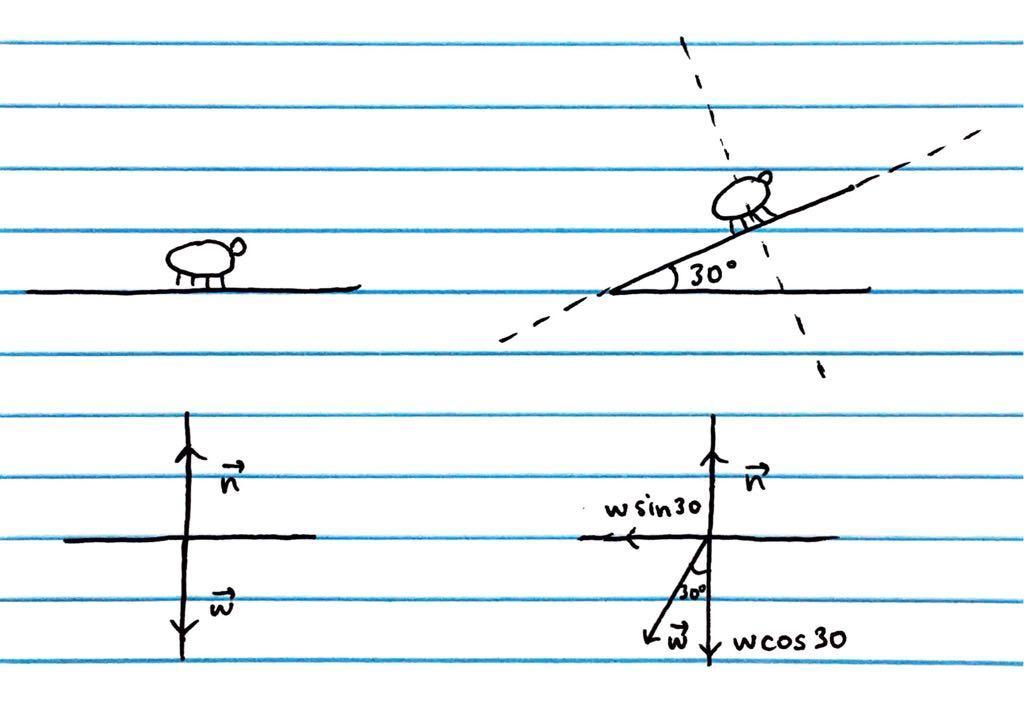 30°
n⃗
n⃗
w sin 30
w⃗
30°
w⃗
w cos 30